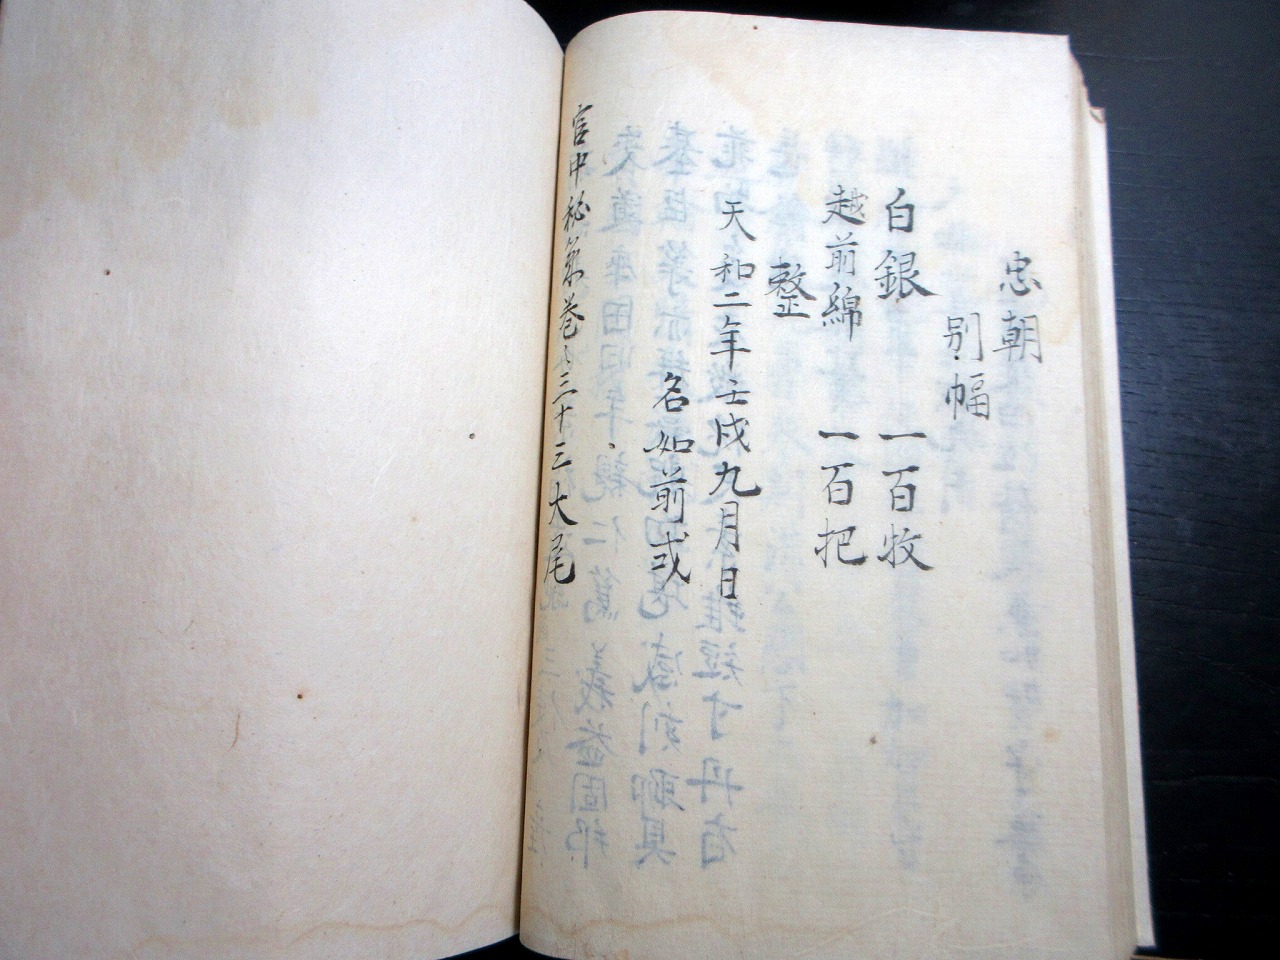 忠朝
別幅
白銀 一百枚
越前綿 一百把
整
天和二年壬戌九月日
名如前或
宮中秘策巻ノ三十三大尾